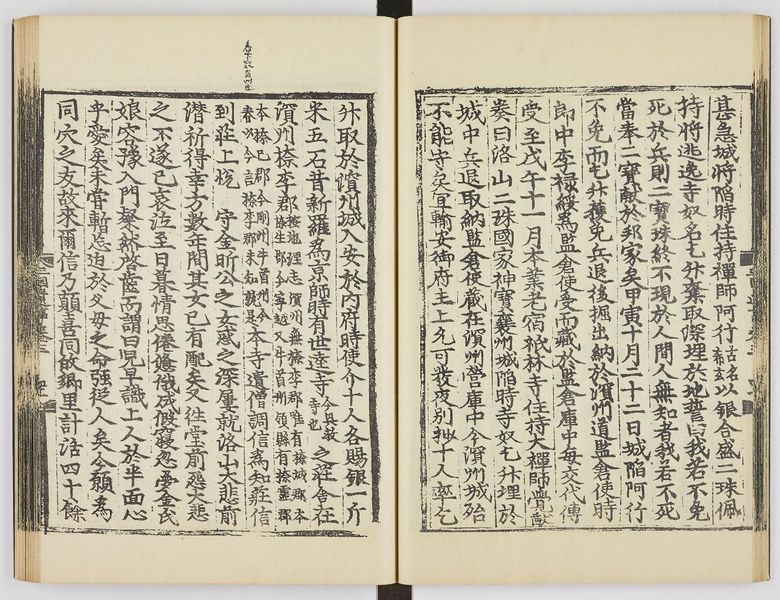 甚急城將陷時住持禪師阿行古名希玄以銀合盛二珠佩
持將逃逸寺奴名乞升棄取深埋於地誓曰我若不免
死於兵則二寶珠終不現於人間人無知者我若不死
當奉二寶獻於邦家矣甲寅十月二十二日城陷阿行
不免而乞升獲免兵退後掘出納於溟州道監倉使時
郎中李祿綏爲監倉使受而藏於監倉庫中每交代傳
受至戊午十一月本業老宿祇林寺住持大禪師覺猷
奏曰洛山二珠國家神寶襄州城陷時寺奴乞升埋於
城中兵退取納監倉使藏在溟州營庫中今溟州城殆
不能守矣宜輸安御府主上允可發夜別抄十人率乞
升取於溟州城入安於內府時使介十人各賜銀一斤
米五石昔新羅爲京師時有世逵寺今興教寺也之莊舍在
溟州㮈李郡按地理志溟州無㮈李郡唯有㮈城郡本㮈生郡今寧越又牛首州領縣有㮈靈郡
本㮈已郡今剛州牛首州今春州今言㮈李郡未知孰是本寺遣僧調信爲知莊信
到莊上悅 守金昕公之女惑之深屢就洛山大悲前
潛祈得幸方數年間其女已有配矣又往堂前怨大悲
之不遂已哀泣至日暮情思倦憊俄成假寢忽夢金氏
娘容豫入門粲然啓齒而謂曰兒早識上人於半面心
乎愛矣未嘗暫忘迫於父母之命強從人矣今願爲
同穴之友故來爾信乃顛喜同故鄉里計活四十餘